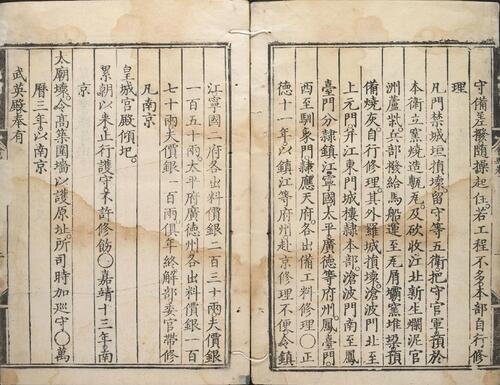 守備差撥隨操起住若工程不多本部自行修
理
凡門禁城垣損壞留守等五衛把守官軍預於
本衛立窯燒造甎瓦及砍收江北新生爛泥官
洲蘆柴兵部撥給馬船運至瓦屑壩窯堆垜預
備燒灰自行修理其外羅城損壞滄波門北至
上元門并江東門城樓隸本部滄波門南至鳳
臺門分隸鎮江寧國太平廣德等府州鳳臺門
西至馴象門隸應天府各出備工料修理○正
德十一年以鎮江等府州赴京修理不便令鎮
江寧國二府各出料價銀二百三十兩夫價銀
一百五十兩太平府廣德州各出料價銀一百
七十兩夫價銀一百兩俱年終解部委官帶修
凡南京
皇城宮殿傾圮
累朝以來止行護守不許修飭○嘉靖十三年南
京
太廟壞令高築圍墻以護原址所司時加巡守○萬
曆三年以南京
武英殿奉有